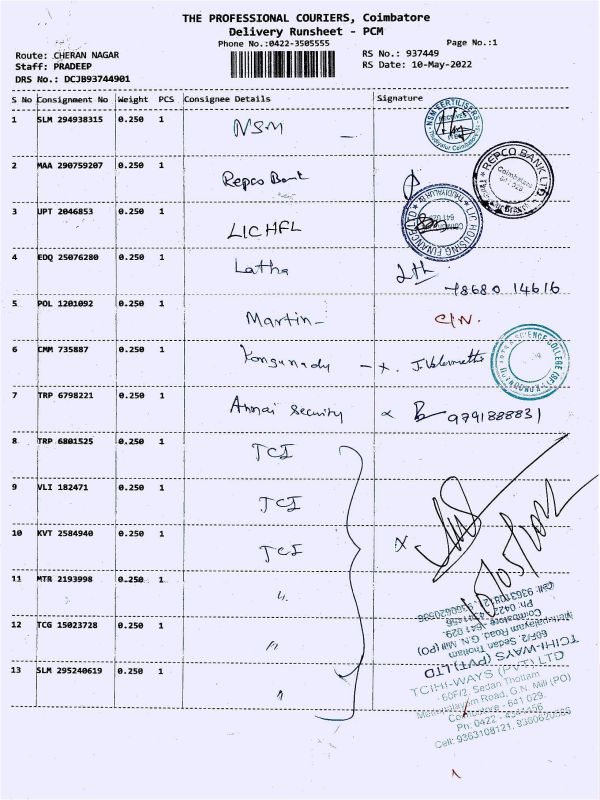 THE PROFESSIONAL COURIERS, Coimbatore
Delivery Runsheet - PCM
Phone No.:0422-3505555
Page No.:1
Route: CHERAN NAGAR
RS No.: 937449
Staff: PRADEEP
RS Date: 10-May-2022
DRS No.: DCJB93744901
S No Consignment No Weight PCS Consignee Details Signature
1 SLM 294938315 0.250 1 NSM
NSM FERTILISERS
2 MAA 290759207 0.250 1 Repco Bank
REPCO BANK LTD
Coimbatore
641 029
3 UPT 2046853 0.250 1 LICHFL
LIC HOUSING FINANCE LTD
641 029
4 EDQ 25076280 0.250 1 Latha
78680 14616
5 POL 1201092 0.250 1 Martin
6 CMM 735887 0.250 1 Kongunady
ARTS & SCIENCE COLLEGE
7 TRP 6798221 0.250 1 Annai Security
9791888831
8 TRP 6801525 0.250 1 TCI
9 VLI 182471 0.250 1 TCI
10 KVT 2584940 0.250 1 TCI x
10/05/2022
11 MTR 2193998 0.250 1 "
12 TCG 15023728 0.250 1 "
13 SLM 295240619 0.250 1 "
TCIHI-WAYS (PVT) LTD
60F/2, Sedan Thottam
Mettupalayam Road, G.N. Mill (PO)
Coimbatore - 641 029.
Cell: 9363108121, 9360620586
TCIHI-WAYS (PVT) LTD
60F/2, Sedan Thottam
Mettupalayam Road, G.N. Mill (PO)
Coimbatore - 641 029.
Ph: 0422 - 4341456
Cell: 9363108121, 9360620586